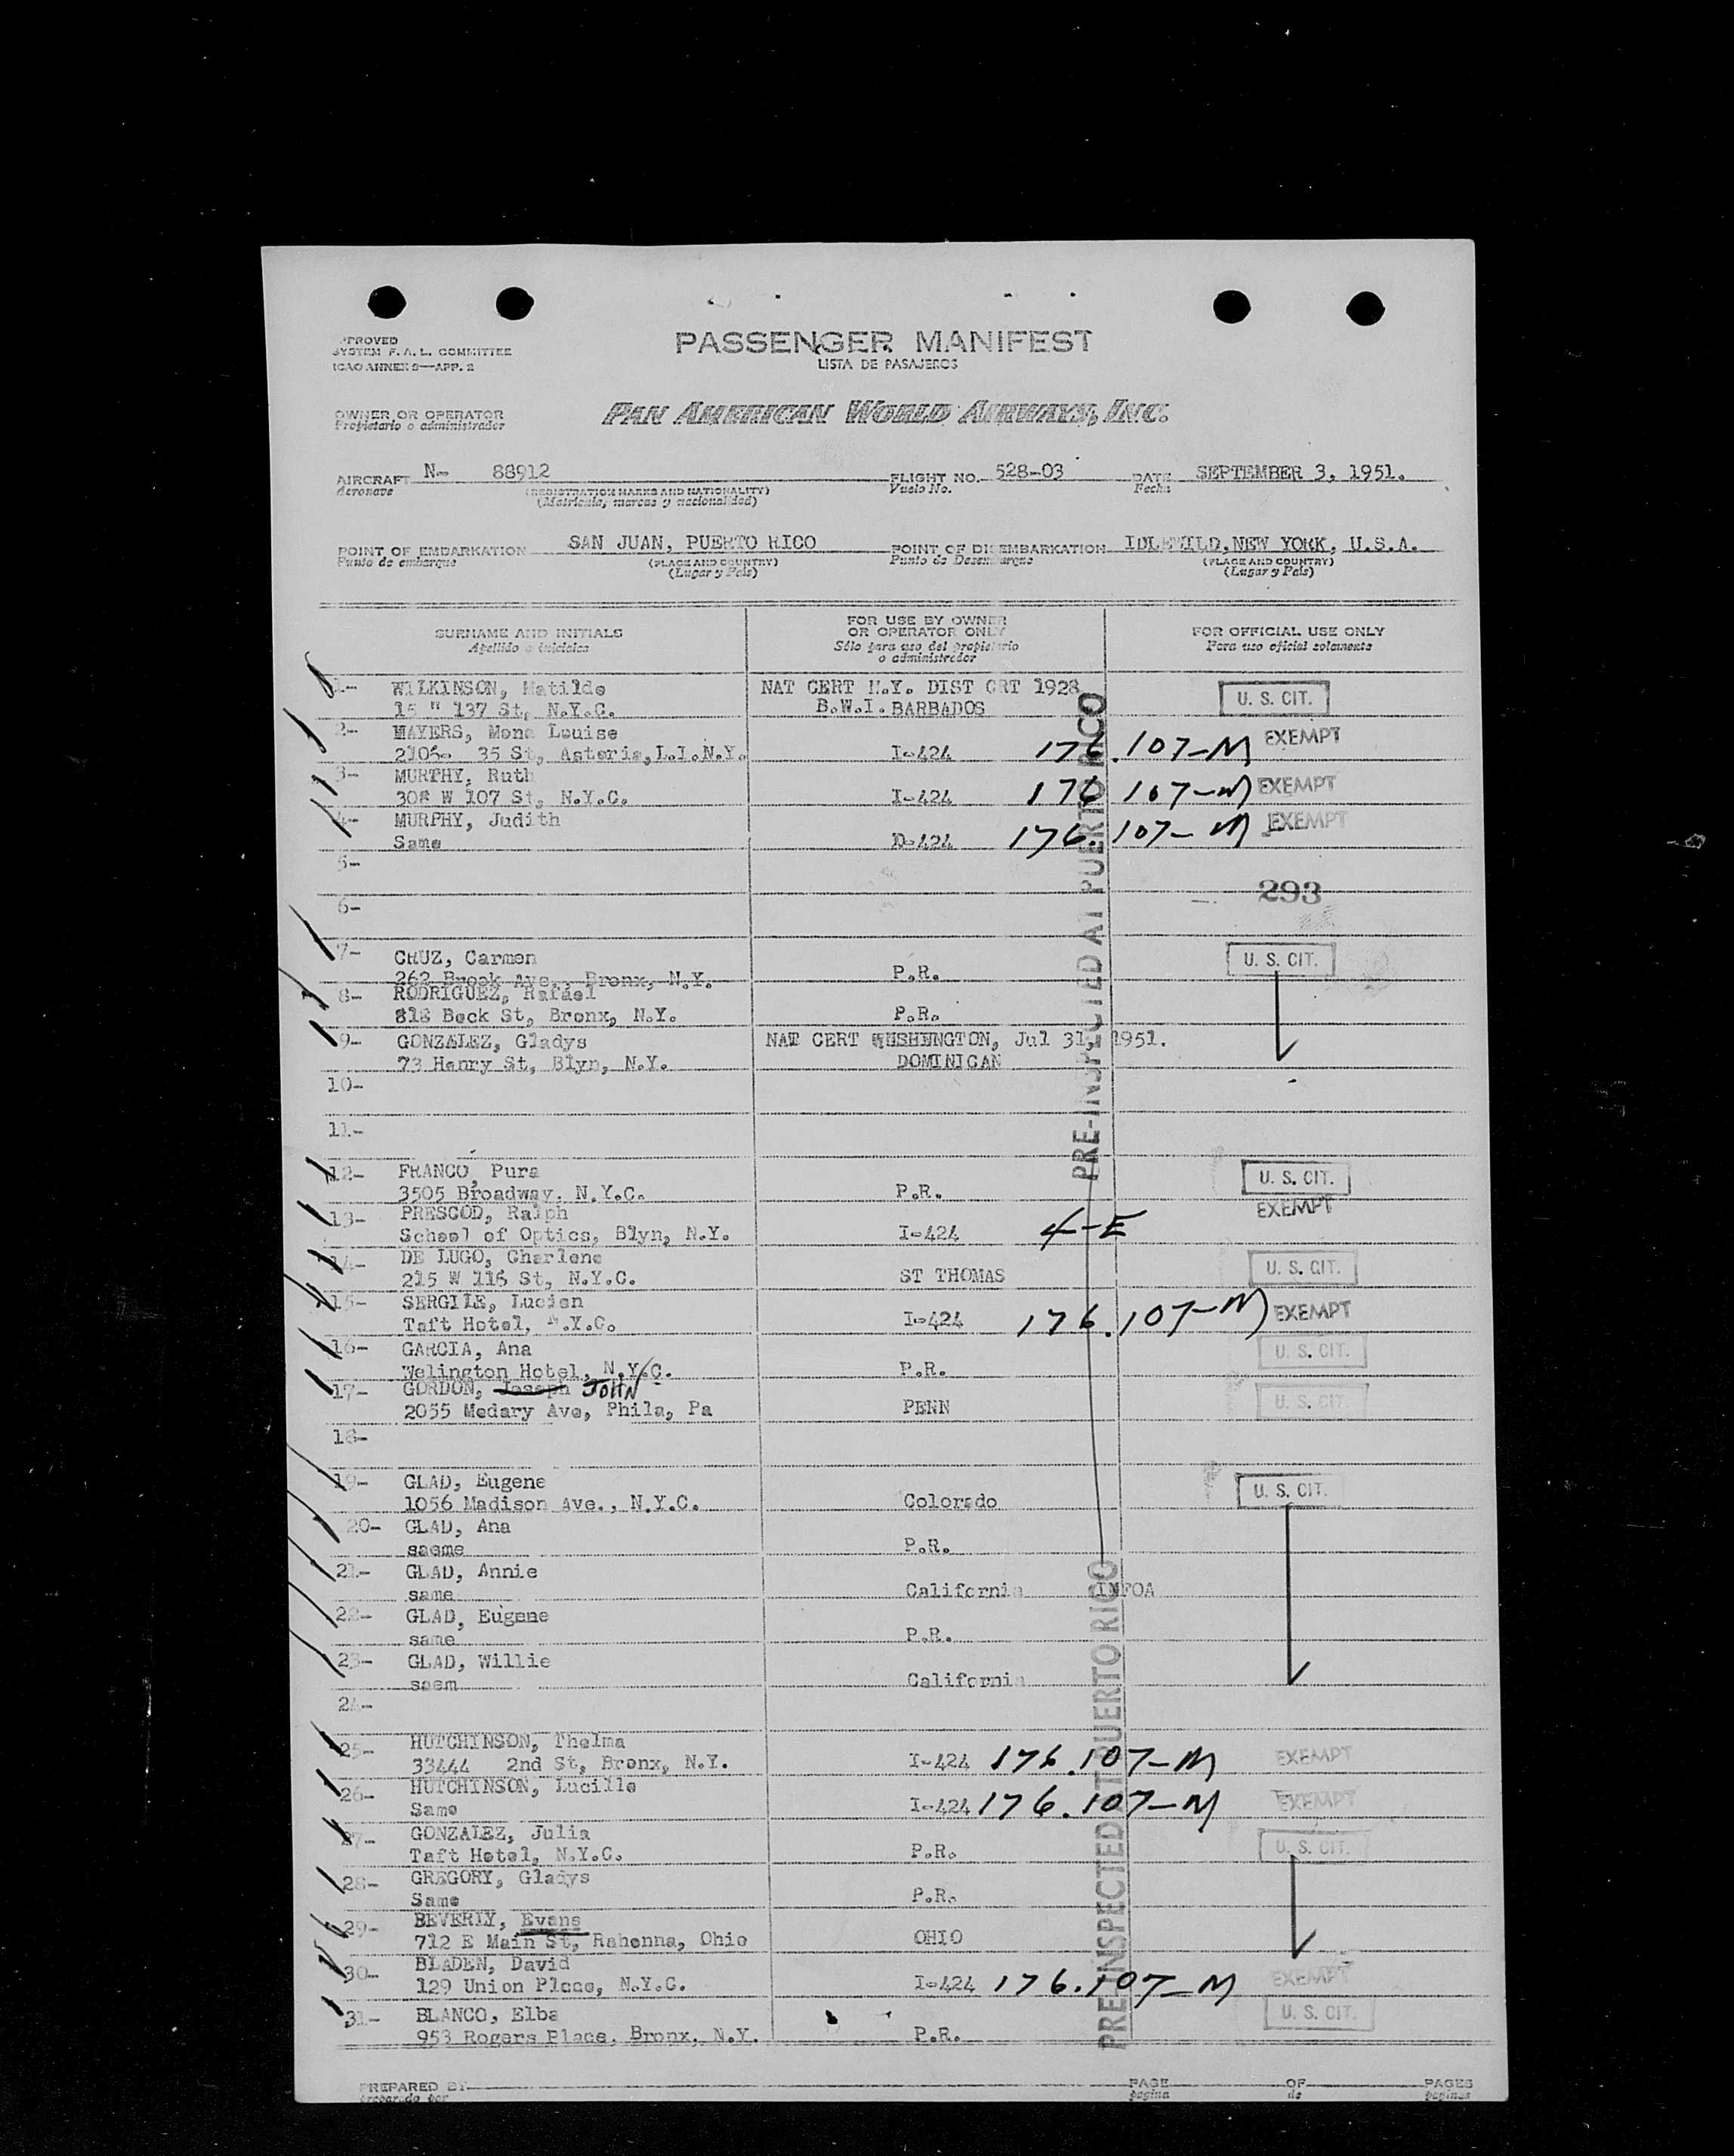 PROVED
SYSTEM F. A. L. COMMITTEE
ICAO ANNEX 9—APP. 2
PASSENGER MANIFEST
LISTA DE PASAJEROS
OWNER OR OPERATOR
Propietario o administrador
PAN AMERICAN WORLD AIRWAYS, INC.
AIRCRAFT N- 88912 FLIGHT NO. 528-03 DATE SEPTEMBER 3, 1951.
Aeronave (REGISTRATION MARKS AND NATIONALITY) Vuelo No. Fecha
(Matricula, marcas y nacionalidad)
POINT OF EMBARKATION SAN JUAN, PUERTO RICO POINT OF DISEMBARKATION IDLEWILD, NEW YORK, U.S.A.
Punto de embarque (PLACE AND COUNTRY) Punto de Desembarque (PLACE AND COUNTRY)
(Lugar y País) (Lugar y País)
SURNAME AND INITIALS FOR USE BY OWNER OR OPERATOR ONLY FOR OFFICIAL USE ONLY
Apellido e iniciales Sólo para uso del propietario o administrador Para uso oficial solamente
1- WILKINSON, Matilde NAT CERT N.Y. DIST CRT 1928 U. S. CIT.
15 " 137 St, N.Y.C. B.W.I. BARBADOS
2- MAYERS, Mona Louise EXEMPT
2105- 35 St, Astoria, L.I.N.Y. I-424 176.107-M
3- MURTHY, Ruth
308 W 107 St, N.Y.C. I-424 176 107-M EXEMPT
4- MURPHY, Judith
Same D-424 176.107-M EXEMPT
5-
293
6-
7- CRUZ, Carmen U. S. CIT.
262 Brook Ave., Bronx, N.Y. P.R.
8- RODRIGUEZ, Rafael
818 Beck St, Bronx, N.Y. P.R.
9- GONZALEZ, Gladys NAT CERT WUSHENGTON, Jul 31, 1951.
73 Henry St, Blyn, N.Y. DOMINICAN
10-
11-
PRE-INSPECTED AT PUERTO RICO
12- FRANCO, Pura U. S. CIT.
3505 Broadway. N.Y.C. P.R.
13- PRESCOD, Ralph EXEMPT
School of Optics, Blyn, N.Y. I-424 4-E
14- DE LUGO, Charlene U. S. CIT.
215 W 116 St, N.Y.C. ST THOMAS
15- SERGILE, Lucien
Taft Hotel, N.Y.C. I-424 176.107-M EXEMPT
16- GARCIA, Ana U. S. CIT.
Welington Hotel, N.Y.C. P.R.
17- GORDON, Joseph JOHN U. S. CIT.
2055 Medary Ave, Phila, Pa PENN
18-
19- GLAD, Eugene U. S. CIT.
1056 Madison Ave., N.Y.C. Colorado
20- GLAD, Ana
saeme P.R.
21- GLAD, Annie
same California INFOA
22- GLAD, Eugene
same P.R.
23- GLAD, Willie
saem California
24-
25- HUTCHINSON, Thelma
33444 2nd St, Bronx, N.Y. I-424 176.107-M EXEMPT
26- HUTCHINSON, Lucille
Same I-424 176.107-M EXEMPT
27- GONZALEZ, Julia U. S. CIT.
Taft Hotel, N.Y.C. P.R.
28- GREGORY, Gladys
Same P.R.
29- BEVERLY, Evans
712 E Main St, Rahenna, Ohio OHIO
30- BLADEN, David
129 Union Place, N.Y.C. I-424 176.107-M EXEMPT
31- BLANCO, Elba U. S. CIT.
953 Rogers Place, Bronx, N.Y. P.R.
PRE-INSPECTED AT PUERTO RICO
PREPARED BY PAGE OF PAGES
Preparado por pagina de paginas